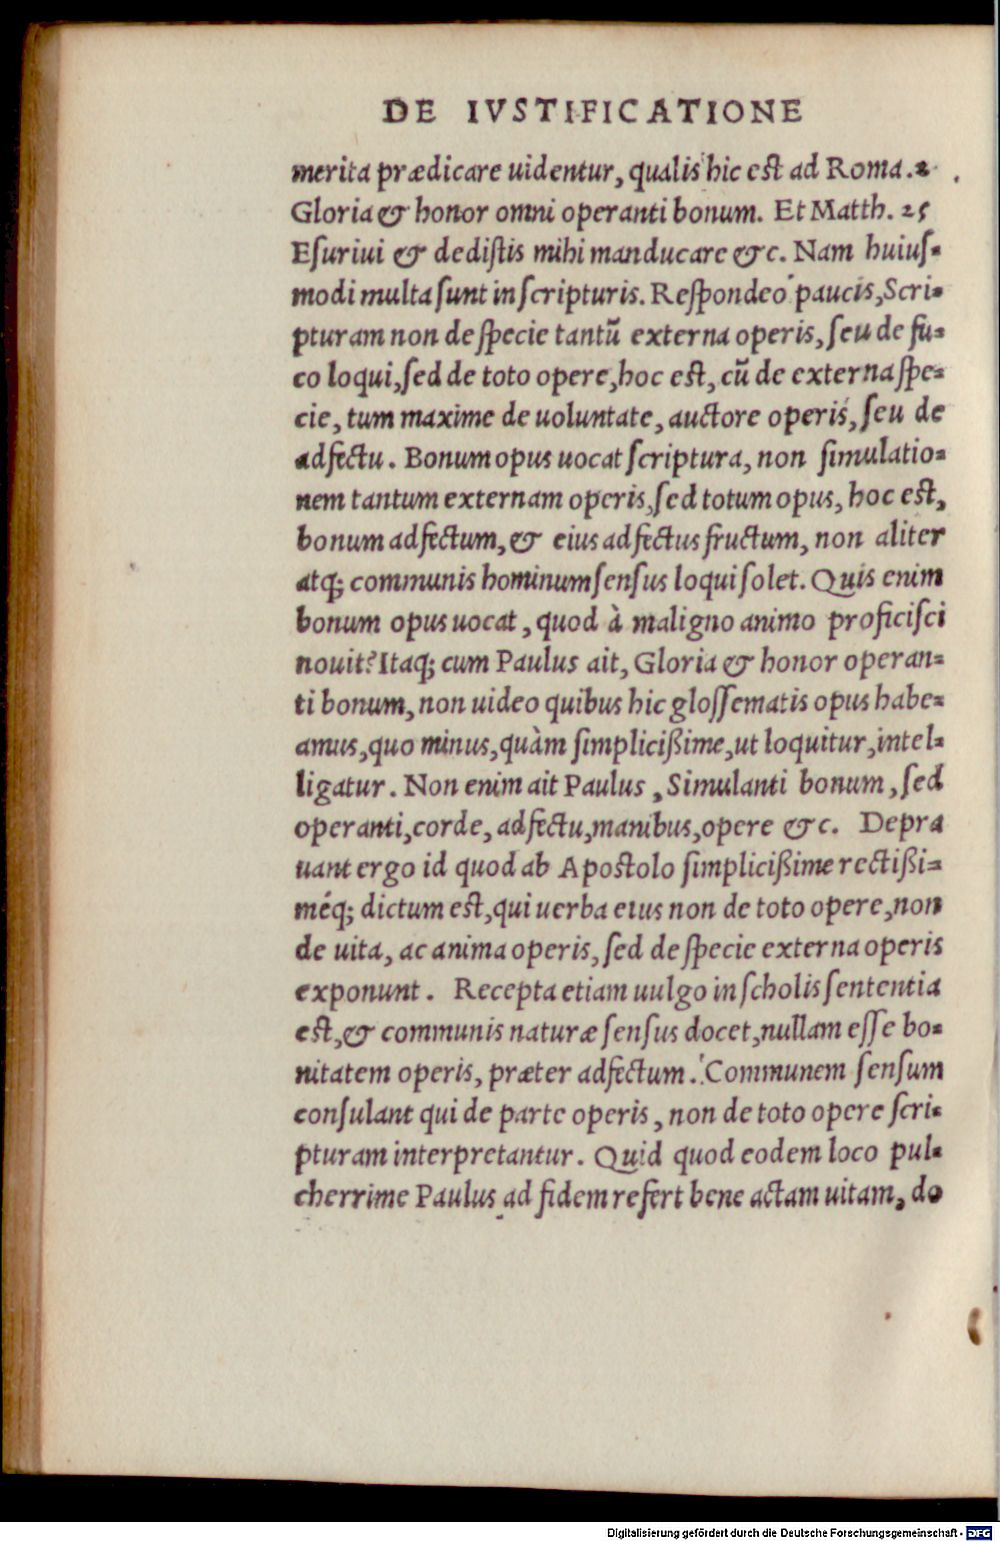 DE IVSTIFICATIONE
merita prædicare uidentur, qualis hic est ad Roma. 2
Gloria & honor omni operanti bonum. Et Matth. 25
Eſuriui & dediſtis mihi manducare &c. Nam huiuſ-
modi multa ſunt in ſcripturis. Reſpondeo paucis, Scri-
pturam non de ſpecie tantũ externa operis, ſeu de fu-
co loqui, ſed de toto opere, hoc eſt, cũ de externa ſpe-
cie, tum maxime de uoluntate, auctore operis, ſeu de
adfectu. Bonum opus uocat ſcriptura, non ſimulatio-
nem tantum externam operis, ſed totum opus, hoc eſt,
bonum adfectum, & eius adfectus fructum, non aliter
atq; communis hominum ſenſus loqui ſolet. Quis enim
bonum opus uocat, quod à maligno animo proficiſci
nouit? Itaq; cum Paulus ait, Gloria & honor operan-
ti bonum, non uideo quibus hic gloſſematis opus habe-
amus, quo minus, quàm ſimplicißime, ut loquitur, intel-
ligatur. Non enim ait Paulus, Simulanti bonum, ſed
operanti, corde, adfectu, manibus, opere &c. Depra
uant ergo id quod ab Apoſtolo ſimplicißime rectißi-
méq; dictum eſt, qui uerba eius non de toto opere, non
de uita, ac anima operis, ſed de ſpecie externa operis
exponunt. Recepta etiam uulgo in ſcholis ſententia
eſt, & communis naturæ ſenſus docet, nullam eſſe bo-
nitatem operis, præter adfectum. Communem ſenſum
conſulant qui de parte operis, non de toto opere ſcri-
pturam interpretantur. Quid quod eodem loco pul-
cherrime Paulus ad fidem refert bene actam uitam, do
Digitalisierung gefördert durch die Deutsche Forschungsgemeinschaft - DFG